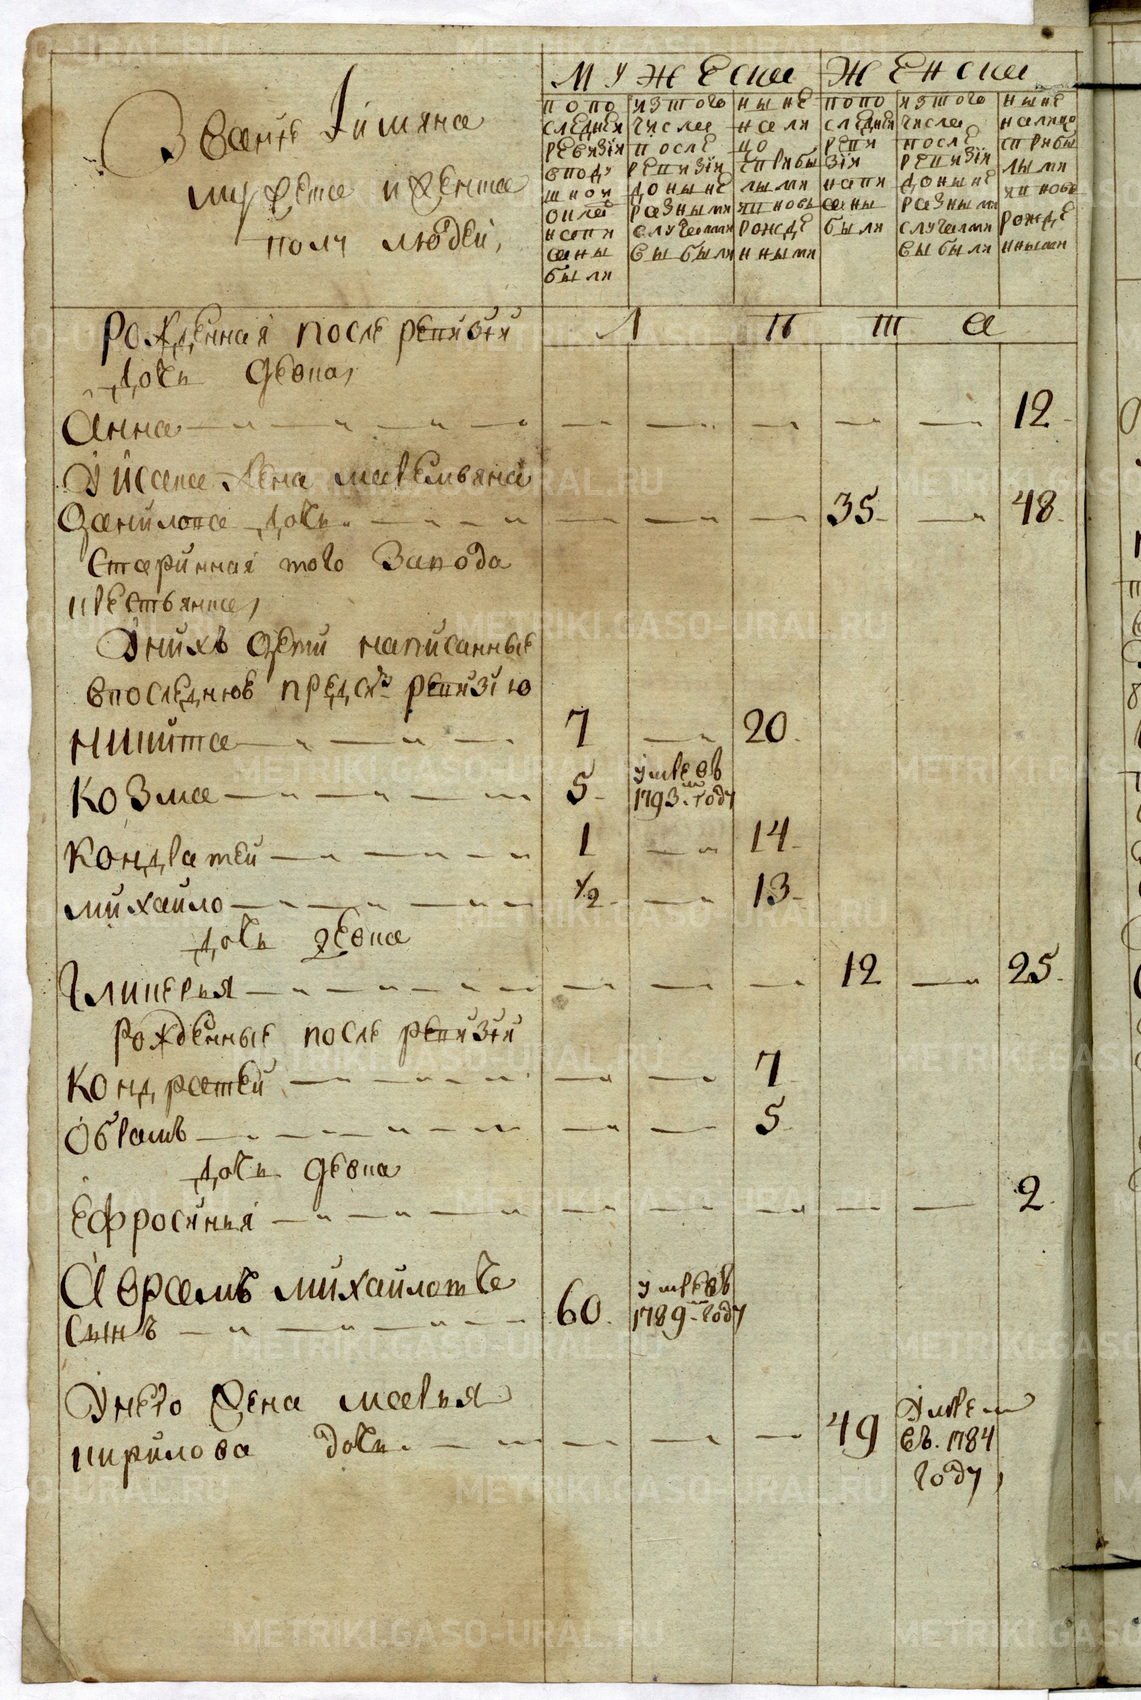 Званіе Імяна
мужеска и женска
полу людей,
мужески
женски
попо
следнеи
ревизіи
вподу
шнои
оклад
напи
саны
были
изтого
числа
после
ревизіи
доныне
разными
случаями
выбыли
ныне
нали
цо
сприбы
лыми
ивновь
рожде
нными
попо
следнеи
реви
зіи
напи
саны
были
изтого
числа
после
ревизіи
доныне
разными
случаями
выбыли
ныне
налицо
сприбы
лыми
ивновь
рожде
нными
Л е т а
Рожденная после ревизіи
дочь девка,
Анна 12
Уисака жена макемьяна
данилова дочь 35 48
Старинная того Завода
крестьянка,
Униxъ дети написанные
впоследнюю предсихъ ревизію
никита 7 20
козма 5 умре въ
1793м году
кондратеи 1 14
михаило 1/2 13
дочь девка
Гликерья 12 25
Рожденные после ревизіи
кондратеи 7
Обрамъ 5
дочь девка
Ефросинья 2
Аврамъ михаиловъ
сынъ 60 умре въ
1789м году
Унего жена марья
кирилова дочь 49 Умре
въ 1784
году,
METRIKI.GASO-URAL.RU